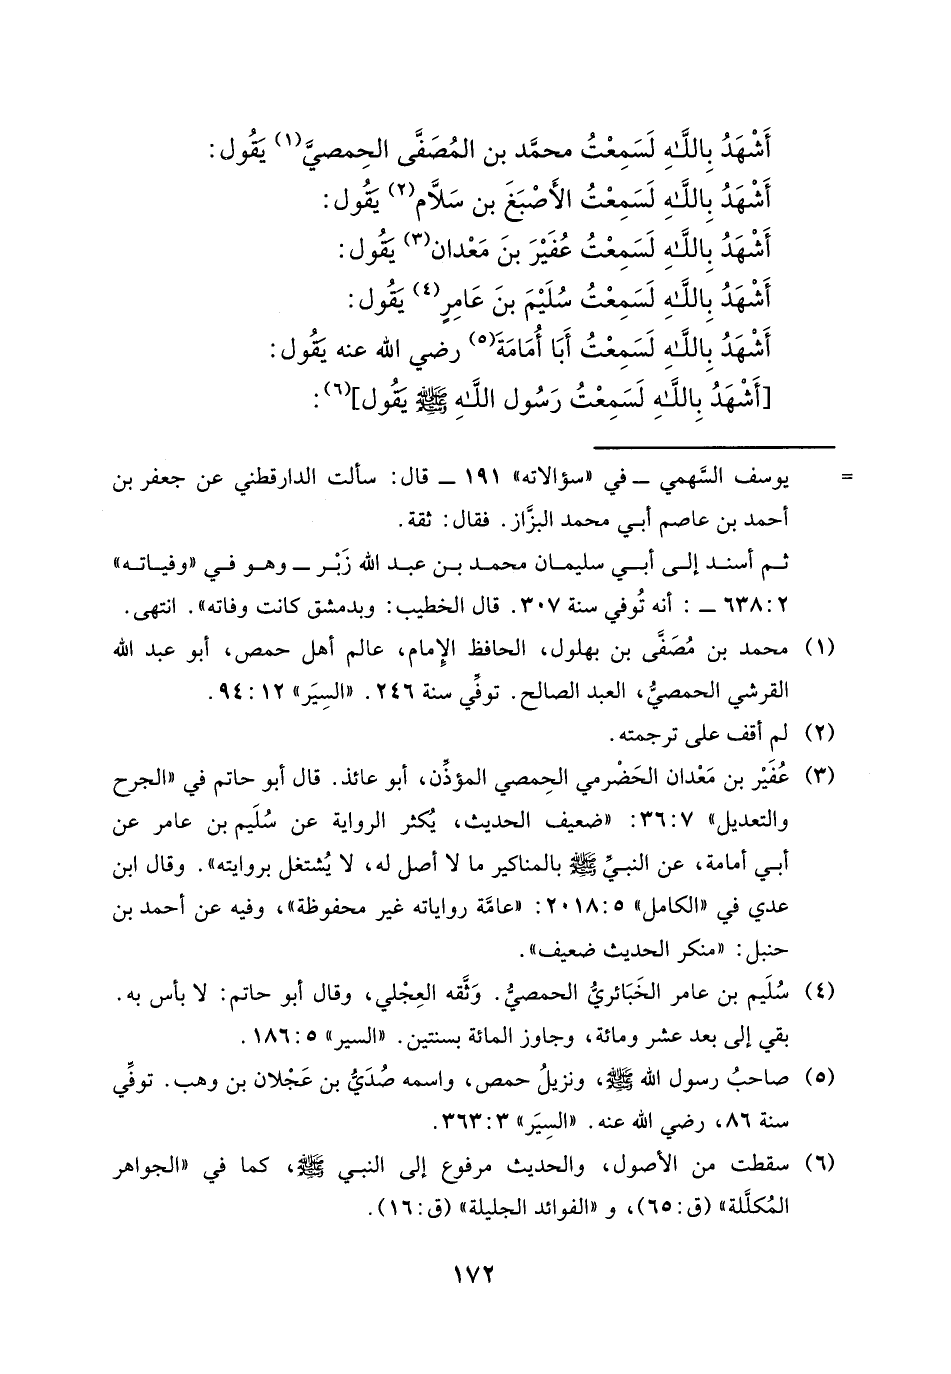 أَشْهَدُ بِاللَّهِ لَسَمِعْتُ محمَّد بن المُصَفَّى الحِمصيَّ(١) يَقُول:
أَشْهَدُ بِاللَّهِ لَسَمِعْتُ الأَصْبَغَ بن سَلَّام(٢) يَقُول:
أَشْهَدُ بِاللَّهِ لَسَمِعْتُ عُفَيْرَ بنَ مَعْدان(٣) يَقُول:
أَشْهَدُ بِاللَّهِ لَسَمِعْتُ سُلَيْمَ بنَ عَامِرٍ(٤) يَقُول:
أَشْهَدُ بِاللَّهِ لَسَمِعْتُ أَبَا أُمَامَةَ(٥) رضي الله عنه يَقُول:
[أَشْهَدُ بِاللَّهِ لَسَمِعْتُ رَسُول اللَّهِ ﷺ يَقُول](٦):
= يوسف السَّهمي ــ في «سؤالاته» ١٩١ ــ قال: سألت الدارقطني عن جعفر بن
أحمد بن عاصم أبي محمد البزَّاز. فقال: ثقة.
ثم أسند إلى أبي سليمان محمد بن عبد الله زَبْر ــ وهو في «وفياته»
٢:٦٣٨ ــ : أنه تُوفي سنة ٣٠٧. قال الخطيب: وبدمشق كانت وفاته». انتهى.
(١) محمد بن مُصَفَّى بن بهلول، الحافظ الإمام، عالم أهل حمص، أبو عبد الله
القرشي الحمصيُّ، العبد الصالح. توفِّي سنة ٢٤٦. «السِيَر» ١٢:٩٤.
(٢) لم أقف على ترجمته.
(٣) عُفَيْر بن مَعْدان الحَضْرمي الحِمصي المؤذِّن، أبو عائذ. قال أبو حاتم في «الجرح
والتعديل» ٧:٣٦: «ضعيف الحديث، يُكثر الرواية عن سُلَيم بن عامر عن
أبي أمامة، عن النبيِّ ﷺ بالمناكير ما لا أصل له، لا يُشتغل بروايته». وقال ابن
عدي في «الكامل» ٥:٢٠١٨: «عامَّة رواياته غير محفوظة»، وفيه عن أحمد بن
حنبل: «منكر الحديث ضعيف».
(٤) سُلَيم بن عامر الخَبَائريُّ الحمصيُّ. وَثَّقه العِجْلي، وقال أبو حاتم: لا بأس به.
بقي إلى بعد عشر ومائة، وجاوز المائة بسنتين. «السير» ٥:١٨٦.
(٥) صاحبُ رسول الله ﷺ، ونزيلُ حمص، واسمه صُدَيُّ بن عَجْلان بن وهب. توفِّي
سنة ٨٦، رضي الله عنه. «السِيَر» ٣:٣٦٣.
(٦) سقطت من الأصول، والحديث مرفوع إلى النبي ﷺ، كما في «الجواهر
المُكلَّلة» (ق:٦٥)، و «الفوائد الجليلة» (ق:١٦).
١٧٢